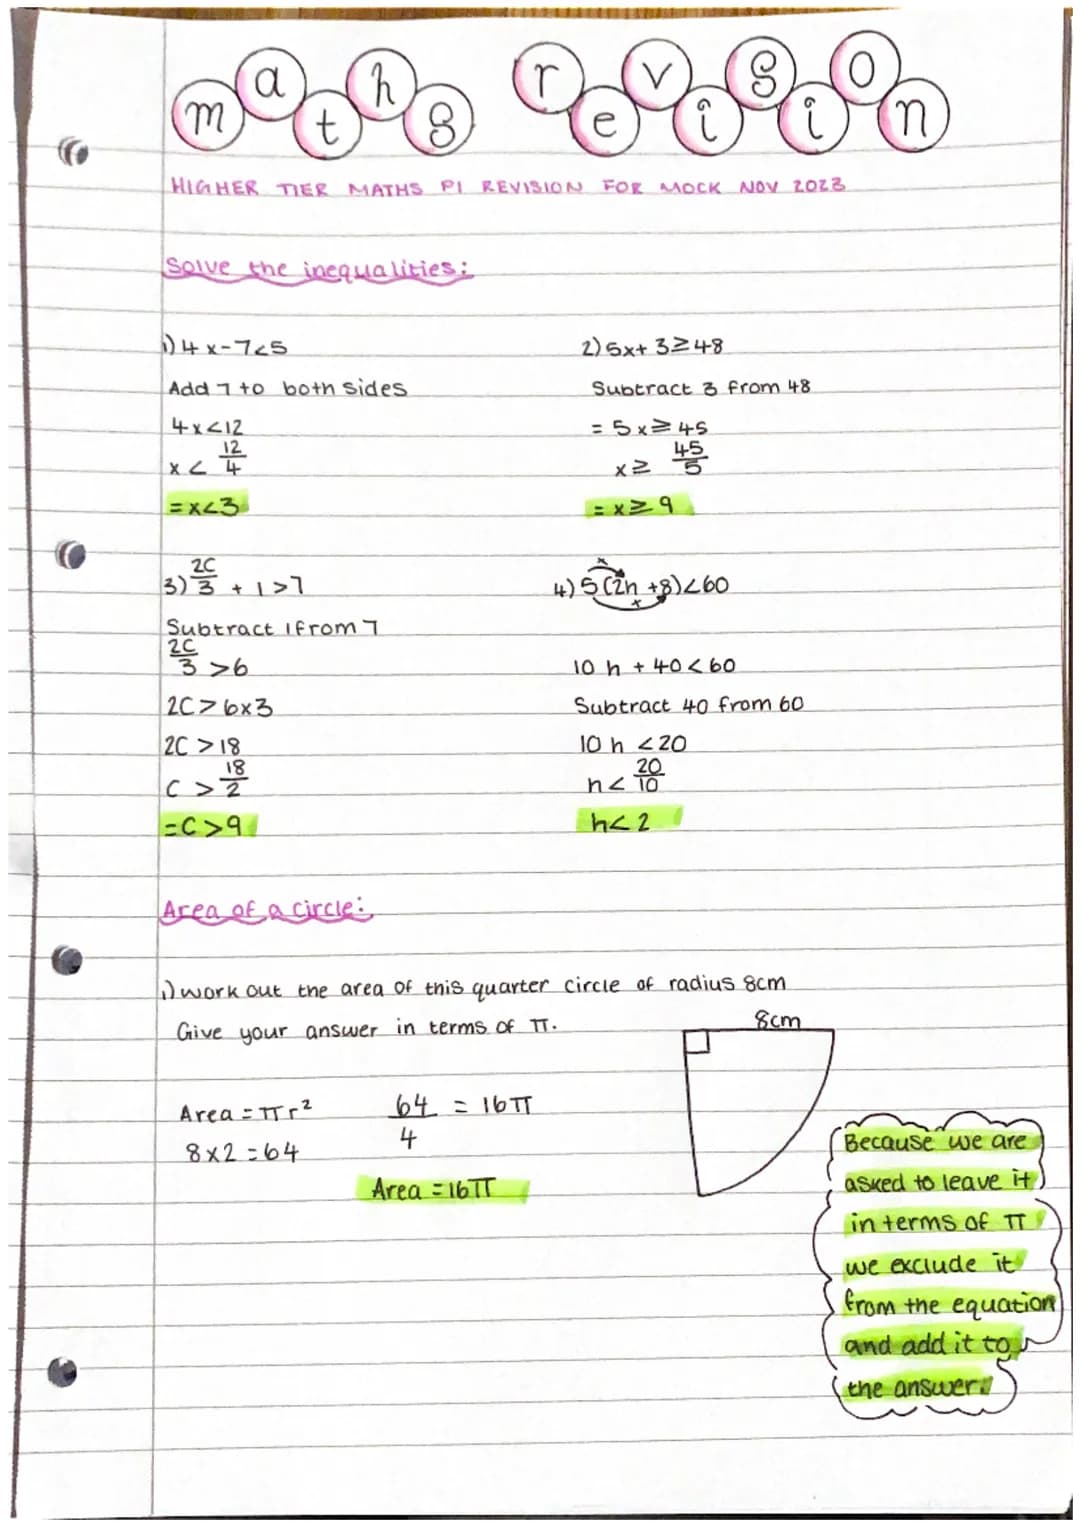 maths revision
HIGHER TIER MATHS P1 REVISION FOR MOCK NOV 2023
Solve the inequalities:
1) 4x-7<5
Add 7 to both sides
4x<12
x < 12/4
=x<3
2) 5x+3≥48
Subtract 3 from 48
= 5x≥45
x≥ 45/5
= x≥9
3) 2C/3 + 1>7
Subtract 1 from 7
2C/3 >6
2C>6x3
2C >18
C > 18/2
=C>9
4) 5(2h+8)<60
x
x
10h + 40<60
Subtract 40 from 60
10h <20
h< 20/10
h<2
Area of a circle:
1) work out the area of this quarter circle of radius 8cm
Give your answer in terms of π.
8cm
Area = πr²
8x2=64
64/4 = 16π
Area = 16π
Because we are
asked to leave it
in terms of π
we exclude it
from the equation
and add it to
the answer.